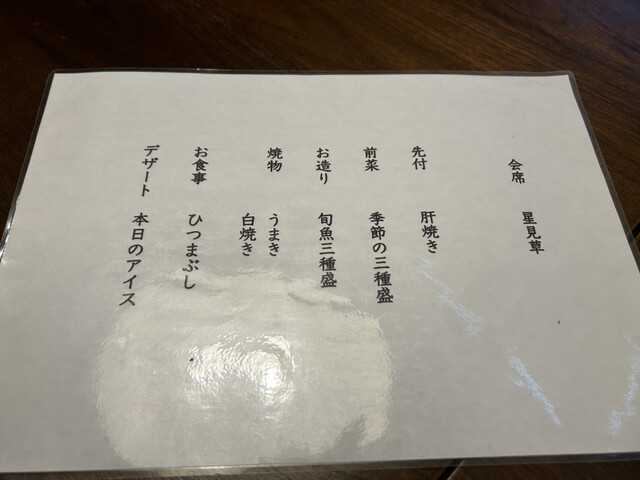 会席 星見草
先付 肝焼き
前菜 季節の三種盛
お造り 旬魚三種盛
焼物 うまき
白焼き
お食事 ひつまぶし
デザート 本日のアイス